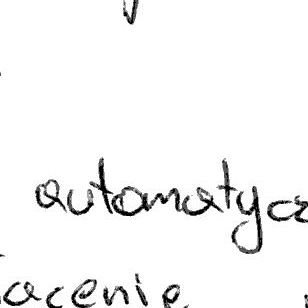 automatycz
acenie